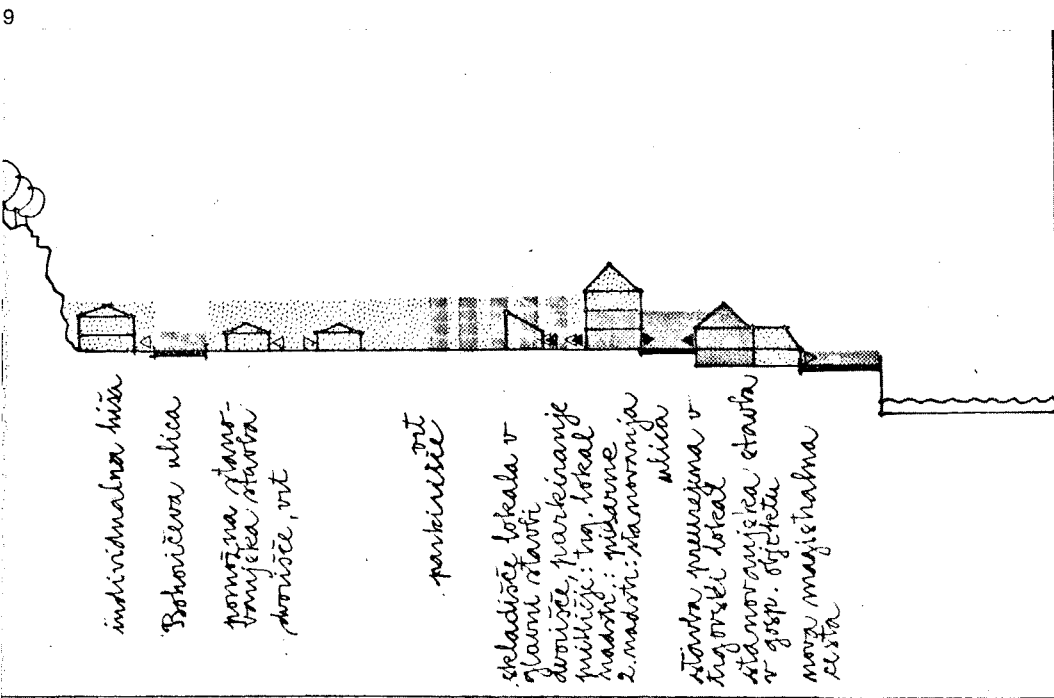 9
individualna hiša
Bohoričeva ulica
pomožna stano-
vanjska stavba
dvorišče, vrt
vrt
parkirišče
skladišče lokala v
glavni stavbi
dvorišče, parkiranje
pritličje: trg. lokal
nadstr.: pisarne
2. nadstr.: stanovanja
ulica
stavba preurejena v
trgovski lokal
stanovanjska stavba
v gosp. objektu
nova magistralna
cesta